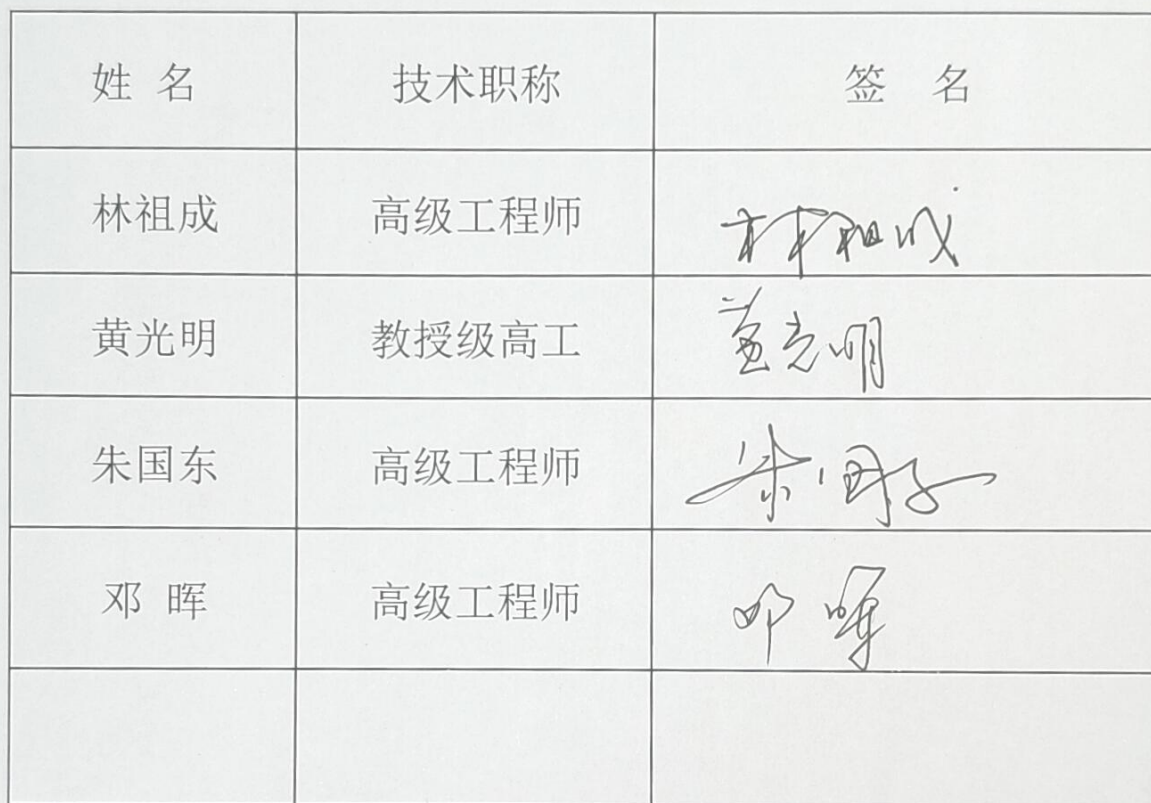 姓 名 技术职称 签 名
林祖成 高级工程师 林祖成
黄光明 教授级高工 黄光明
朱国东 高级工程师 朱国东
邓 晖 高级工程师 邓晖